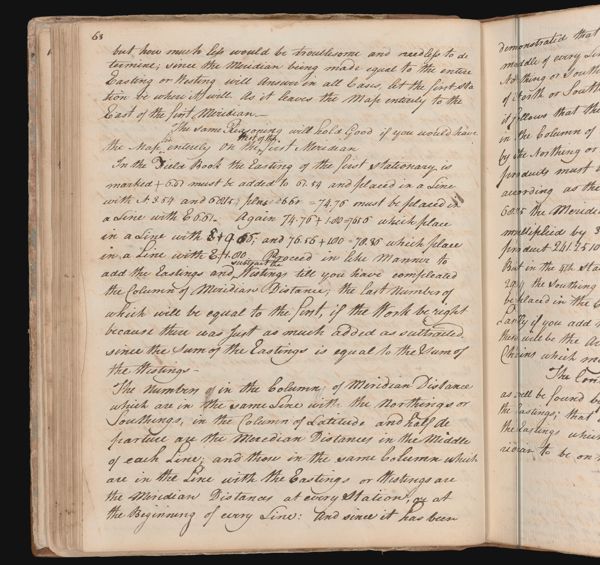 68
but how much less would be troublesome and needless to de
termine; since the Meridian being made equal to the entire
Easting or Westing will answer in all Cases, let the first sta
tion be where it will. As it leaves the Map entirely to the
East of the first Meridian —
The same Reasoning will hold Good if you would have
the Map entirely on the West of the first Meridian
In the Field Book the Easting of the first Stationary is
marked + 6.61 must be added to 67.54 and placed in a Line
with N 3.54 and plus 6.61 = 74.76 must be placed in
a Line with E 6.61. Again 74.76 + 1.80 = 76.56 which place
in a Line with and 76.56 + 1.80 = 78.36 which place
in a Line with E + 1.80 Proceed in like Manner to
add the Eastings and subtract the Westings till you have compleated
the Column of Meridian Distance; the last Number of
which will be equal to the first, if the Work be right
because there was just as much added as subtracted,
since the Sum of the Eastings is equal to the Sum of
the Westings —
The Numbers in the Column of Meridian Distance
which are in the same Line with the Northings or
Southings, in the Column of Latitude and half de
parture are the Meredian Distances in the Middle
of each Line; and those in the same Column which
are in the Line with the Eastings or Westings are
the Meridian Distances at every Station, or at
the Beginning of every Line: and since it has been
demonstrated that
middle of every Line
Northing or South
of North or South
it follows that the
in the Column of
by the Northing or
products must
according as the
the Meridi
multiplied by 3
product 241.2510
But in the 4th Stat
the Southing
be placed in the
Lastly if you add
there will be the
Chains which m
The
as will be found b
the Eastings; that
the Eastings whic
ridian to be on